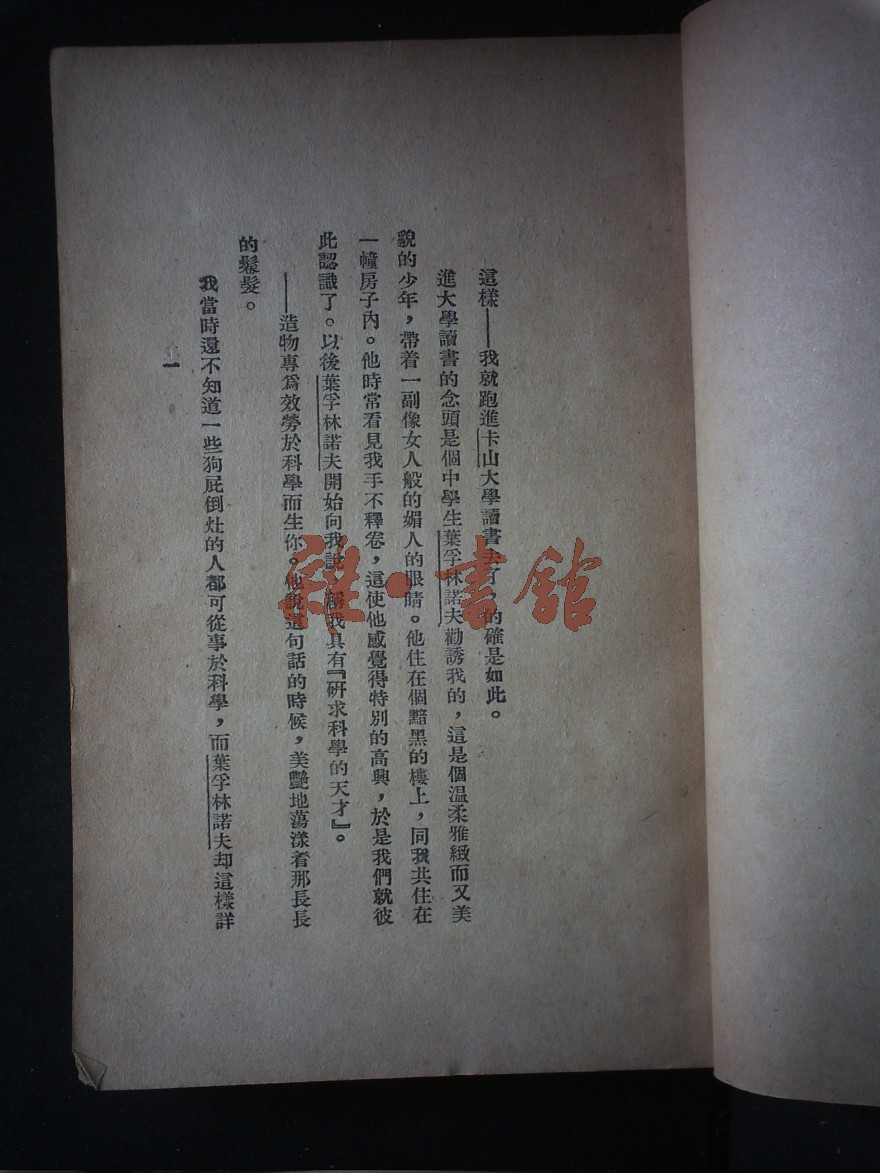 這樣——我就跑進卡山大學讀書去了，的確是如此。
進大學讀書的念頭是個中學生葉孚林諾夫勸誘我的，這是個溫柔雅緻而又美
貌的少年，帶着一副像女人般的媚人的眼睛。他住在個黯黑的樓上，同我共住在
一幢房子內。他時常看見我手不釋卷，這使他感覺得特別的高興，於是我們就彼
此認識了。以後葉孚林諾夫開始向我說，稱我具有『研求科學的天才』。
——造物專爲效勞於科學而生你。他說這句話的時候，美艷地蕩漾着那長長
的鬆髮。
我當時還不知道一些狗屁倒灶的人都可從事於科學，而葉孚林諾夫却這樣詳
一
雜·書館